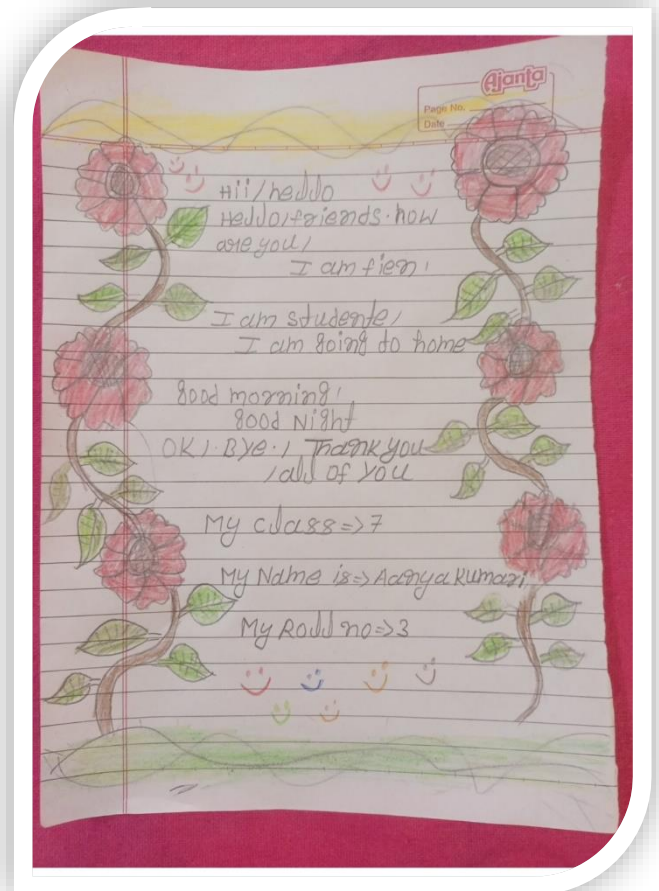 Ajanta
Page No.
Date
Hii/hello
Hello/friends. how
are you/
I am fien!
I am studente/
I am going to home
good morning!
good Night
OK/. Bye./ Thank you
/all of you
My class=>7
My Name is=>Aanya Kumari,
My Roll no=>3